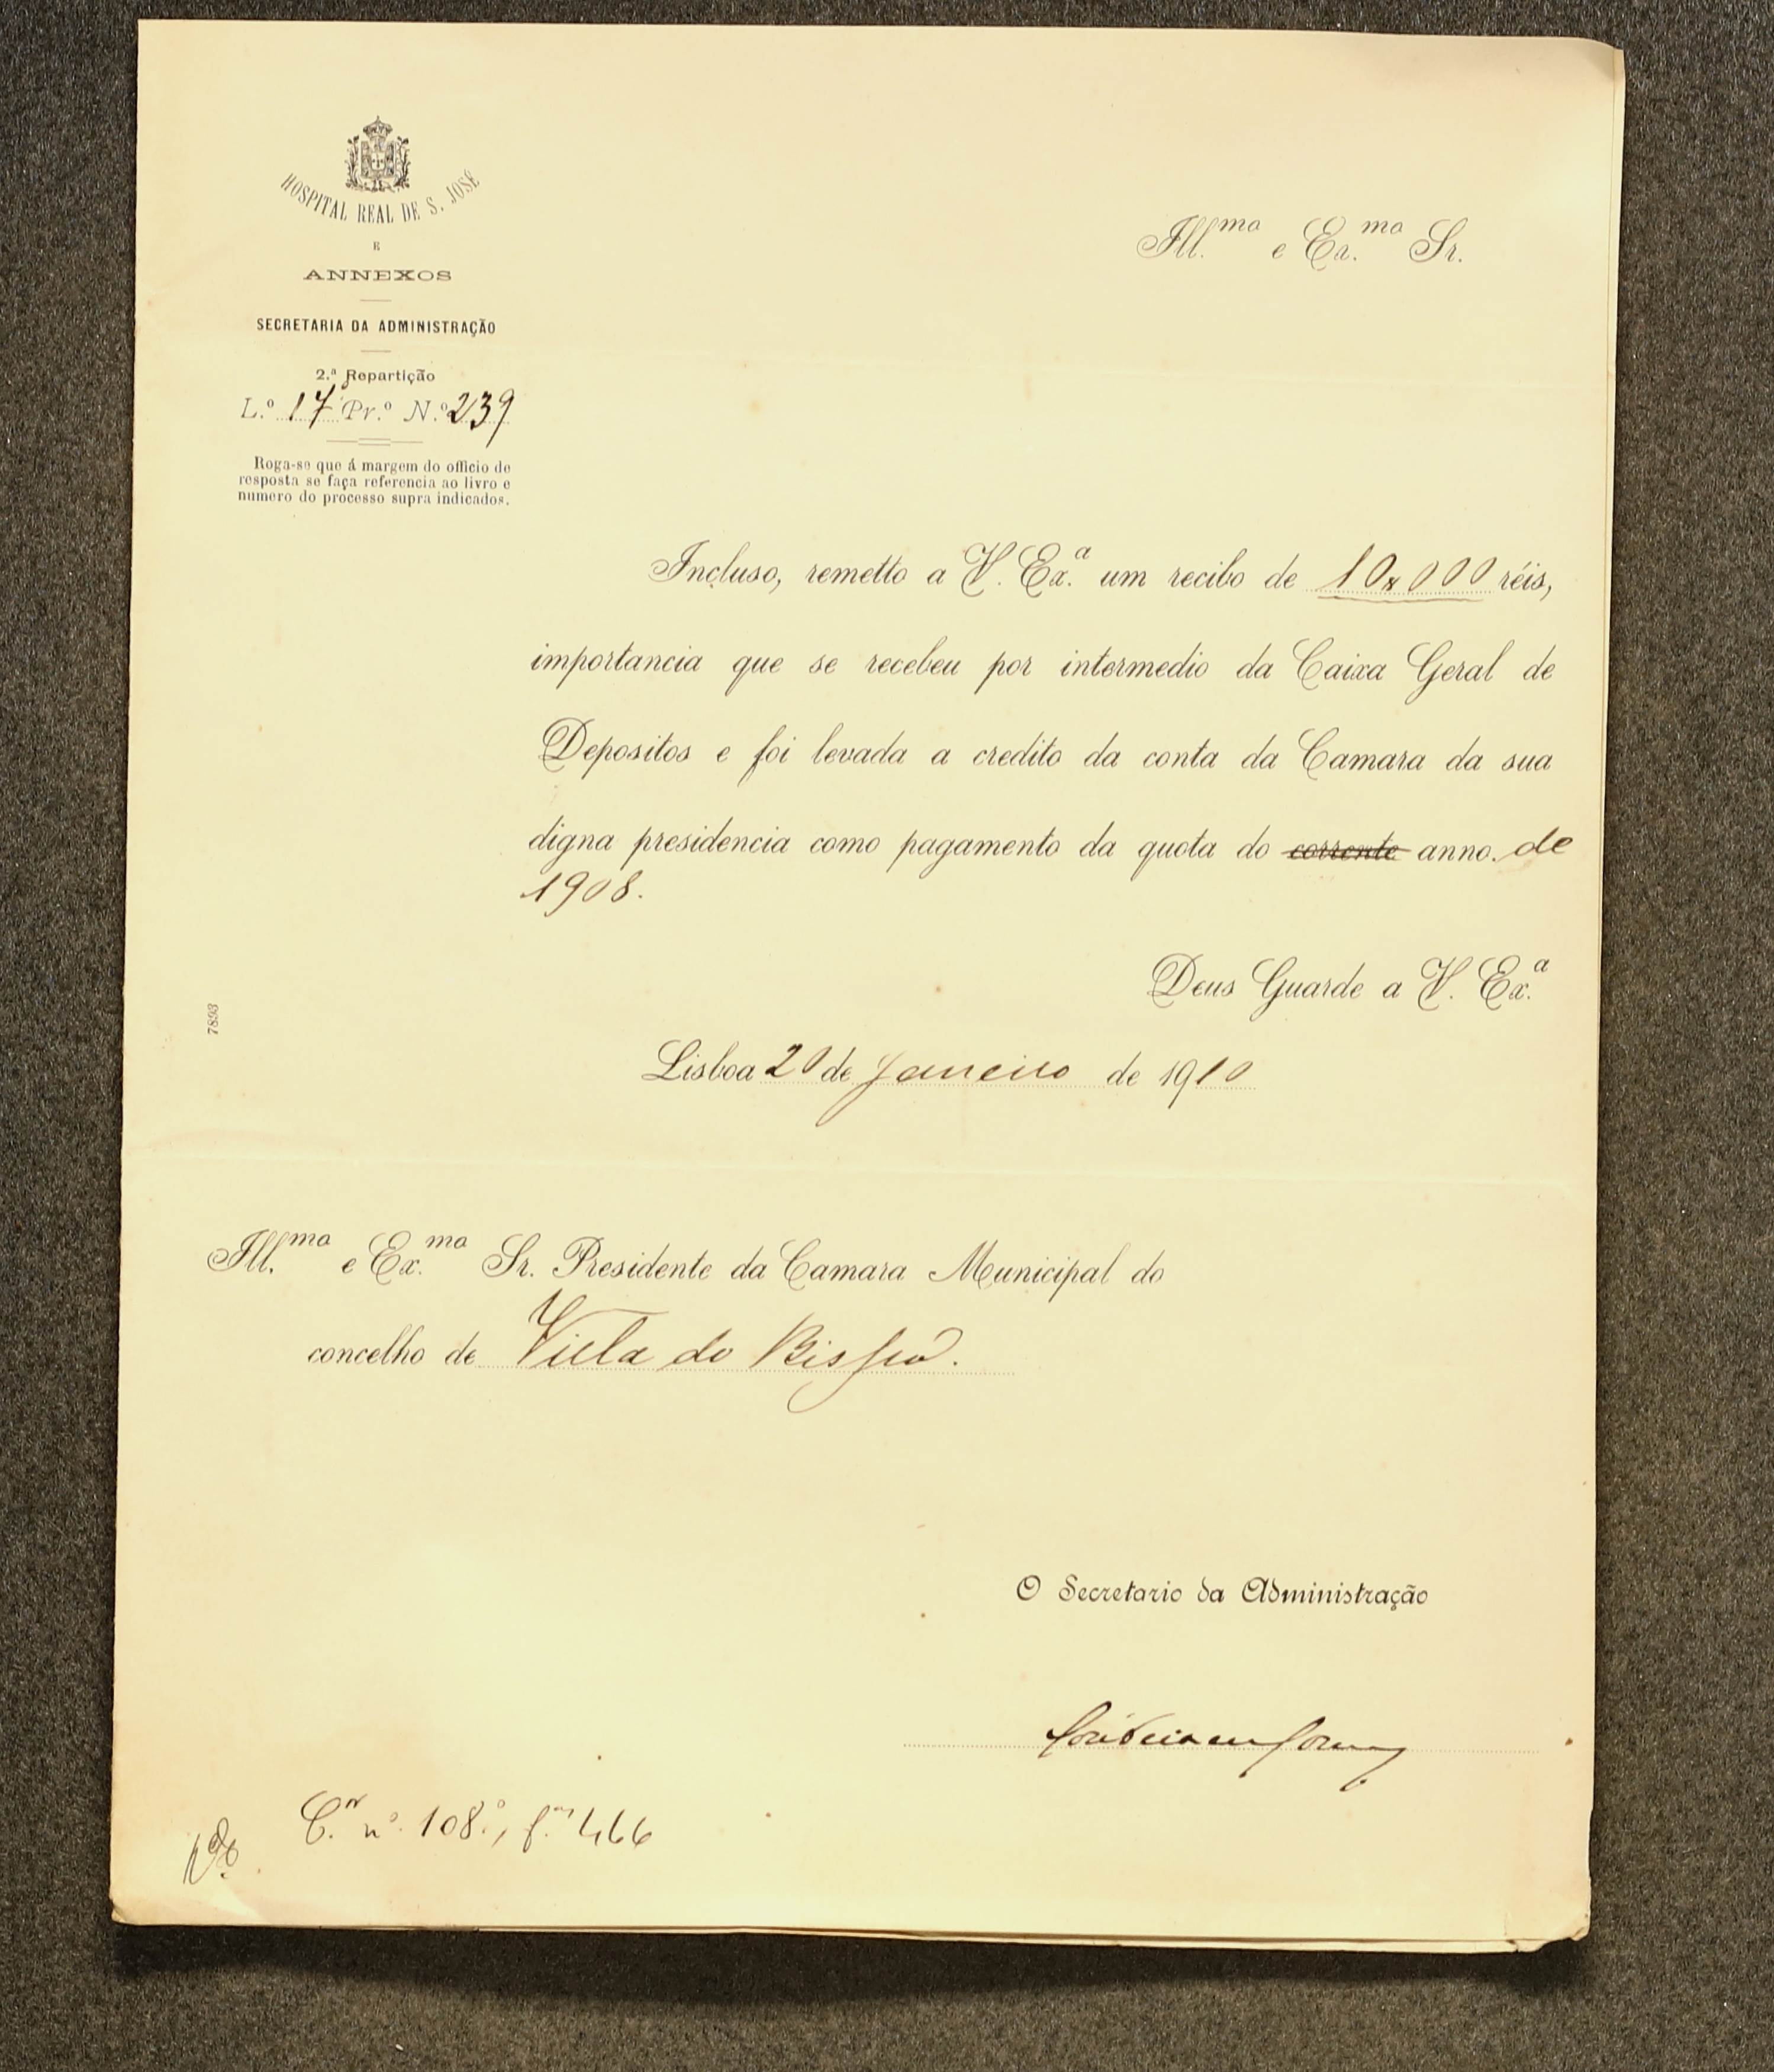 HOSPITAL REAL DE S. JOSÉ
E
ANNEXOS
SECRETARIA DA ADMINISTRAÇÃO
2.ª Repartição
L.º 17 Pr.º N.º 239
Roga-se que á margem do officio de
resposta se faça referencia ao livro e
numero do processo supra indicados.
Ill.mo e Ex.mo Sr.
Incluso, remetto a V. Ex.ª um recibo de 10$000 réis,
importancia que se recebeu por intermedio da Caixa Geral de
Depositos e foi levada a credito da conta da Camara da sua
digna presidencia como pagamento da quota do corrente anno. de
1908.
Deus Guarde a V. Ex.ª
7893
Lisboa 20 de Janeiro de 1910
Ill.mo e Ex.mo Sr. Presidente da Camara Municipal do
concelho de Villa do Bispo.
O Secretario da Administração
C.or n.º 108.º, f. 466